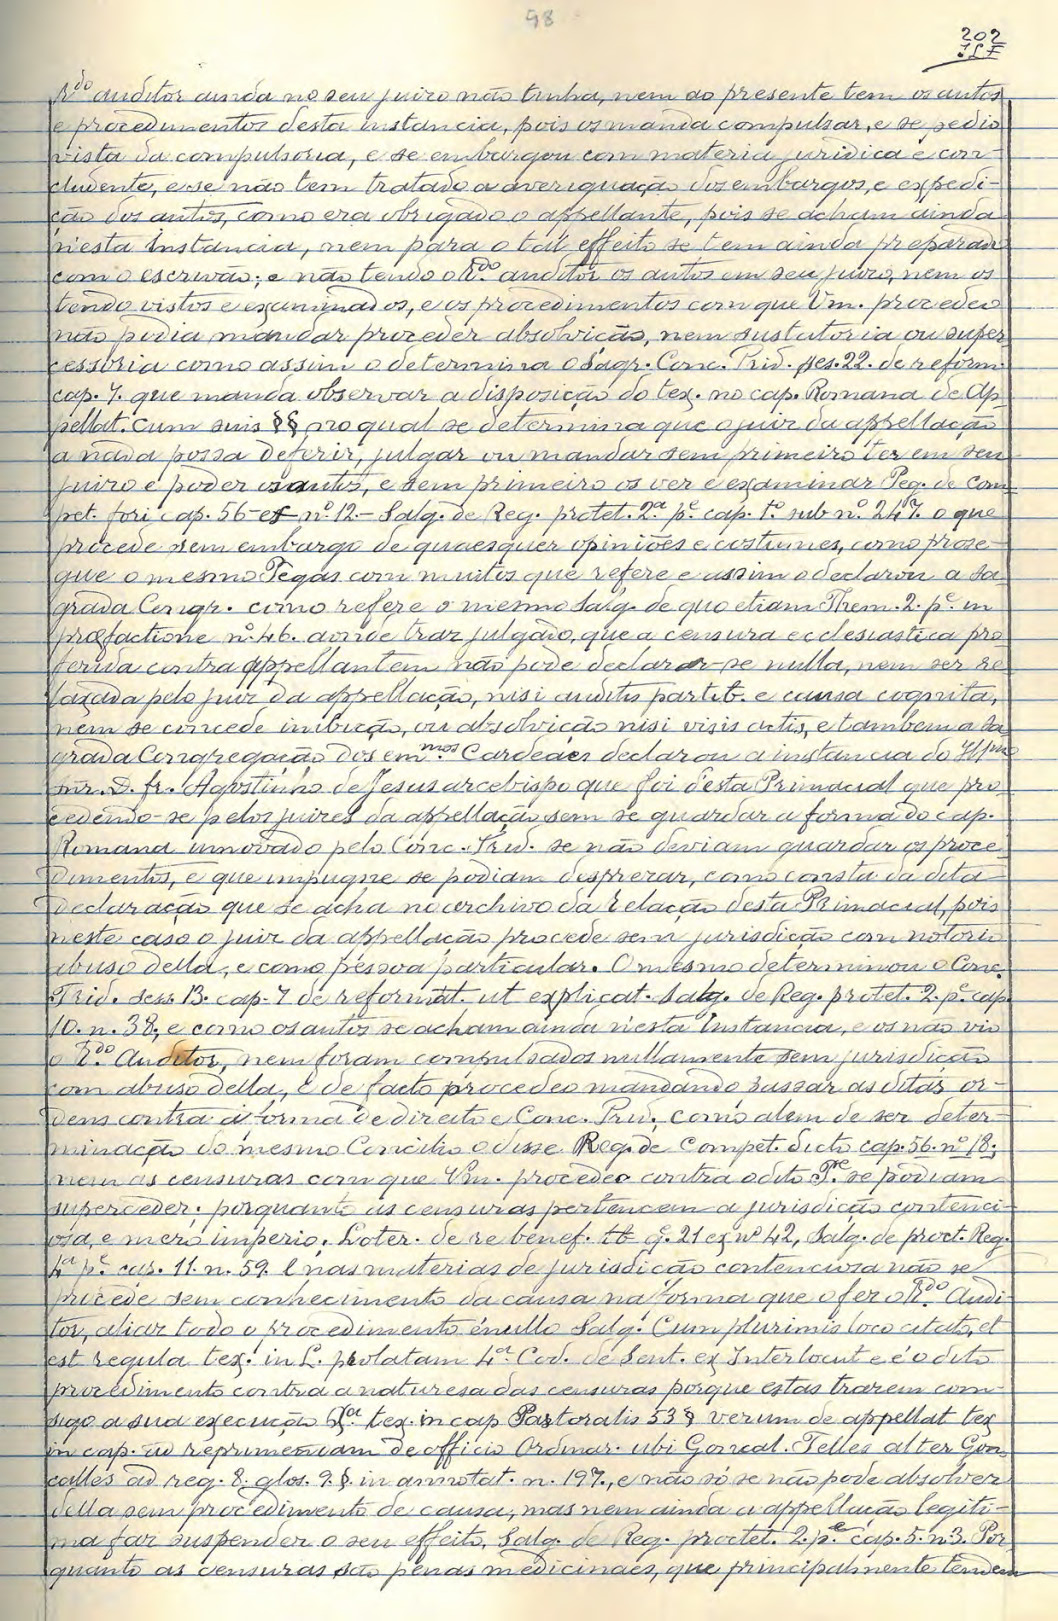 98
202
R.do auditor ainda no seu juizo não tinha, nem ao presente tem os autos
e procedimentos desta instancia, pois os manda compulsar, e se pedio
vista da compulsoria, e se embargou com materia juridica e con-
cludente, e se não tem tratado a averiguação dos embargos, e expedi-
ção dos autos, como era obrigado o appellante, pois se acham ainda
n'esta Instancia, nem para o tal effeito se tem ainda preparado
com o escrivão; e não tendo o R.do auditor os autos em seu juizo, nem os
tendo vistos e examinados, e os procedimentos com que Vm. procedeo
não podia mandar proceder absolvição, nem sustatoria ou super
cessoria como assim o determina o Sagr. Conc. Trid. ses. 22. de reform
cap. 7. que manda observar a disposição do tex. no cap. Romana de Ap-
pellat. cum suis §§ no qual se determina que o juiz da appellação
a nada possa deferir, julgar ou mandar sem primeiro ter em seu
juizo e poder os autos, e sem primeiro os ver e examinar Peg. de Com
pet. fori cap. 56 ex nº 12.- Salg. de Reg. protet. 2.ª p.e cap. 1.º sub nº. 247. o que
procede sem embargo de quaesquer opiniões e costumes, como prose-
gue o mesmo Pegas com muitos que refere e assim o declarou a Sa-
grada Congr. como refere o mesmo Salg. de quo etiam Them. 2. p.e in
præfactione nº. 46. aonde traz julgado, que a censura ecclesiastica pro
ferida contra appellantem não pode declarar-se nulla, nem ser re
laxada pelo juiz da appellação, nisi auditis partib. e causa cognita,
nem se concede inibição, ou absolvição nisi visis actis, e tambem a Sa
grada Congregação dos em.mos Cardeaes declarou a instancia do Ill.mo
Snr. D. fr. Agostinho de Jesus arcebispo que foi d'esta Primacial que pro
cedendo-se pelos juizes da appellação sem se guardar a forma do cap.
Romana innovado pelo Conc. Trid. se não deviam guardar os proce
dimentos, e que impugne se podiam desprezar, como consta da dita
declaração que se acha no archivo da Relação desta Primacial, pois
neste caso o juiz da appellação procede sem jurisdicção com notorio
abuso della, e como pessoa particular. O mesmo determinou o Conc.
Trid. sess. 13. cap. 7 de reformat. ut explicat. Salg. de Reg. protet. 2. p.e cap.
10. n. 38; e como os autos se acham ainda n'esta Instancia, e os não vio
o R.do Auditor, nem foram compulsados nullamente sem jurisdicção
com abuso della, e de facto procedeo mandando passar as ditas or-
dens contra a forma de direito e Conc. Trid., como alem de ser deter-
minação do mesmo Concilio o disse Reg. de Compet. dicto cap. 56. nº 18;
nem as censuras com que Vm. procedeo contra o dito P.re se podiam
superceder; porquanto as censuras pertencem a jurisdicção contenci-
osa, e mero imperio; Loter. de re benef. tt q. 21 ex nº 42, Salg. de proct. Reg.
4.ª p.e cap. 11. n. 59. E nas materias de jurisdicção contenciosa não se
procede sem conhecimento da causa na forma que o fez o R.do Audi-
tor, aliaz todo o procedimento é nullo Salg. Cum plurimis loco citato, et
est regula tex. in L. prolatam 4.ª Cod. de Sent. ex Interlocut e é o dito
procedimento contra a naturesa das censuras porque estas trazem com-
sigo a sua execução tex. in cap Pastoralis 53 § verum de appellat tex
in cap. ad reprimendam de officio Ordinar. ubi Goncal. Telles alter Gon
çalles ad reg. 8. glos. 9. §. in annotat. n. 197., e não só se não pode absolver
della sem procedimento de causa; mas nem ainda a appellação legiti-
ma faz suspender o seu effeito, Salg. de Reg. proctet. 2. p.e cap. 5. n. 3. Por
quanto as censuras são penas medicinaes, que principalmente tendem